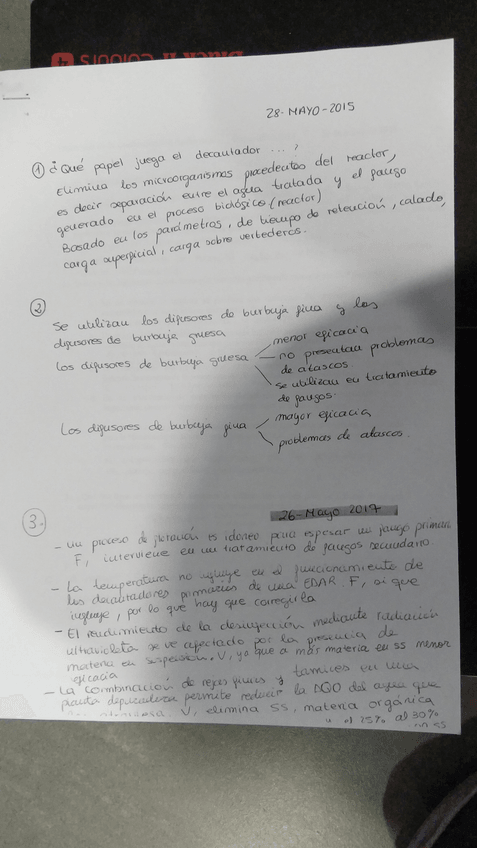 28-MAYO-2015
① ¿Qué papel juega el decantador ...?
Elimina los microorganismos procedentes del reactor,
es decir separación entre el agua tratada y el fango
generado en el proceso biológico (reactor)
Basado en los parámetros, de tiempo de retención, calado,
carga superficial, carga sobre vertederos.
②
Se utilizan los difusores de burbuja fina y los
difusores de burbuja gruesa
Los difusores de burbuja gruesa
menor eficacia
no presentan problemas
de atascos.
se utilizan en tratamiento
de fangos.
Los difusores de burbuja fina
mayor eficacia
problemas de atascos.
26-Mayo 2017
3.
- Un proceso de flotación es idoneo para espesar un fango primario
F, interviene en un tratamiento de fangos secundario
- La temperatura no influye en el funcionamiento de
los decantadores primarios de una EDAR. F, si que
influye, por lo que hay que corregirla
- El rendimiento de la desinfección mediante radiación
ultravioleta se ve afectado por la presencia de
materia en suspensión. V, ya que a más materia en ss menor
eficacia
- La combinación de rejas finas y tamices en una
planta depuradora permite reducir la DQO del agua que
V, elimina SS, materia orgánica
el 25% al 30%
SS